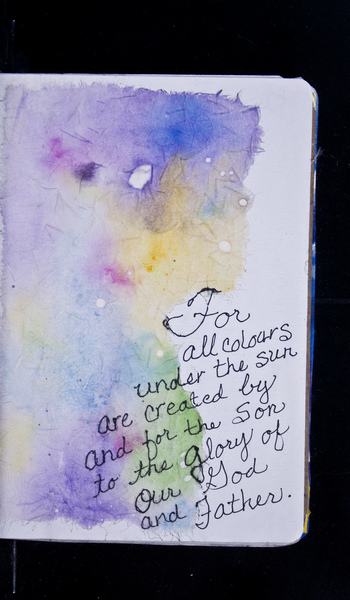 For
all colours
under the sun
are created by
and for the Son
to the glory of
Our God
and Father.